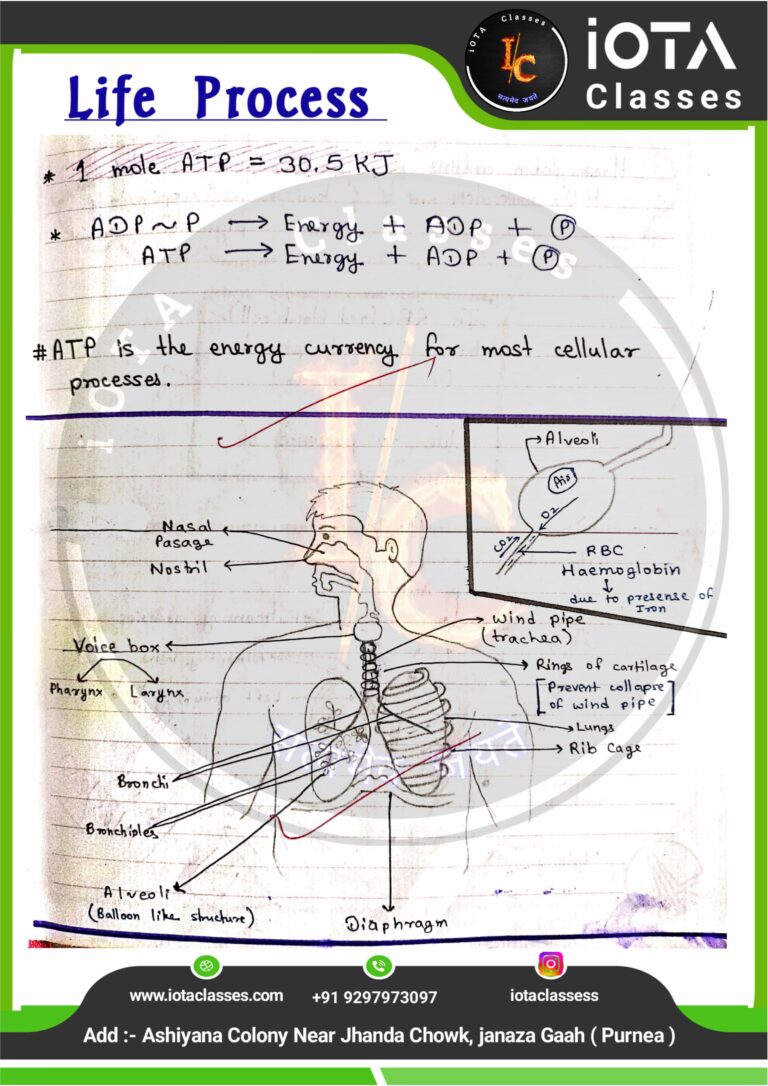 iOTA Classes
I/C
सत्यमेव जयते
iOTA
Classes
Life Process
* 1 mole ATP = 30.5 KJ
* ADP ~ P → Energy + ADP + Ⓟ
ATP → Energy + ADP + Ⓟ
# ATP is the energy currency for most cellular
processes.
iOTA Classes
I/C
सत्यमेव जयते
Alveoli
Air
O2
CO2
RBC
Haemoglobin
↓
due to presense of
Iron
Nasal
Pasage
Nostril
Voice box
Pharynx Larynx
Wind pipe
(trachea)
Rings of cartilage
[Prevent collapse
of wind pipe]
Lungs
Rib Cage
Bronchi
Bronchioles
Alveoli
(Balloon like structure)
Diaphragm
www.iotaclasses.com
+91 9297973097
iotaclassess
Add :- Ashiyana Colony Near Jhanda Chowk, janaza Gaah ( Purnea )